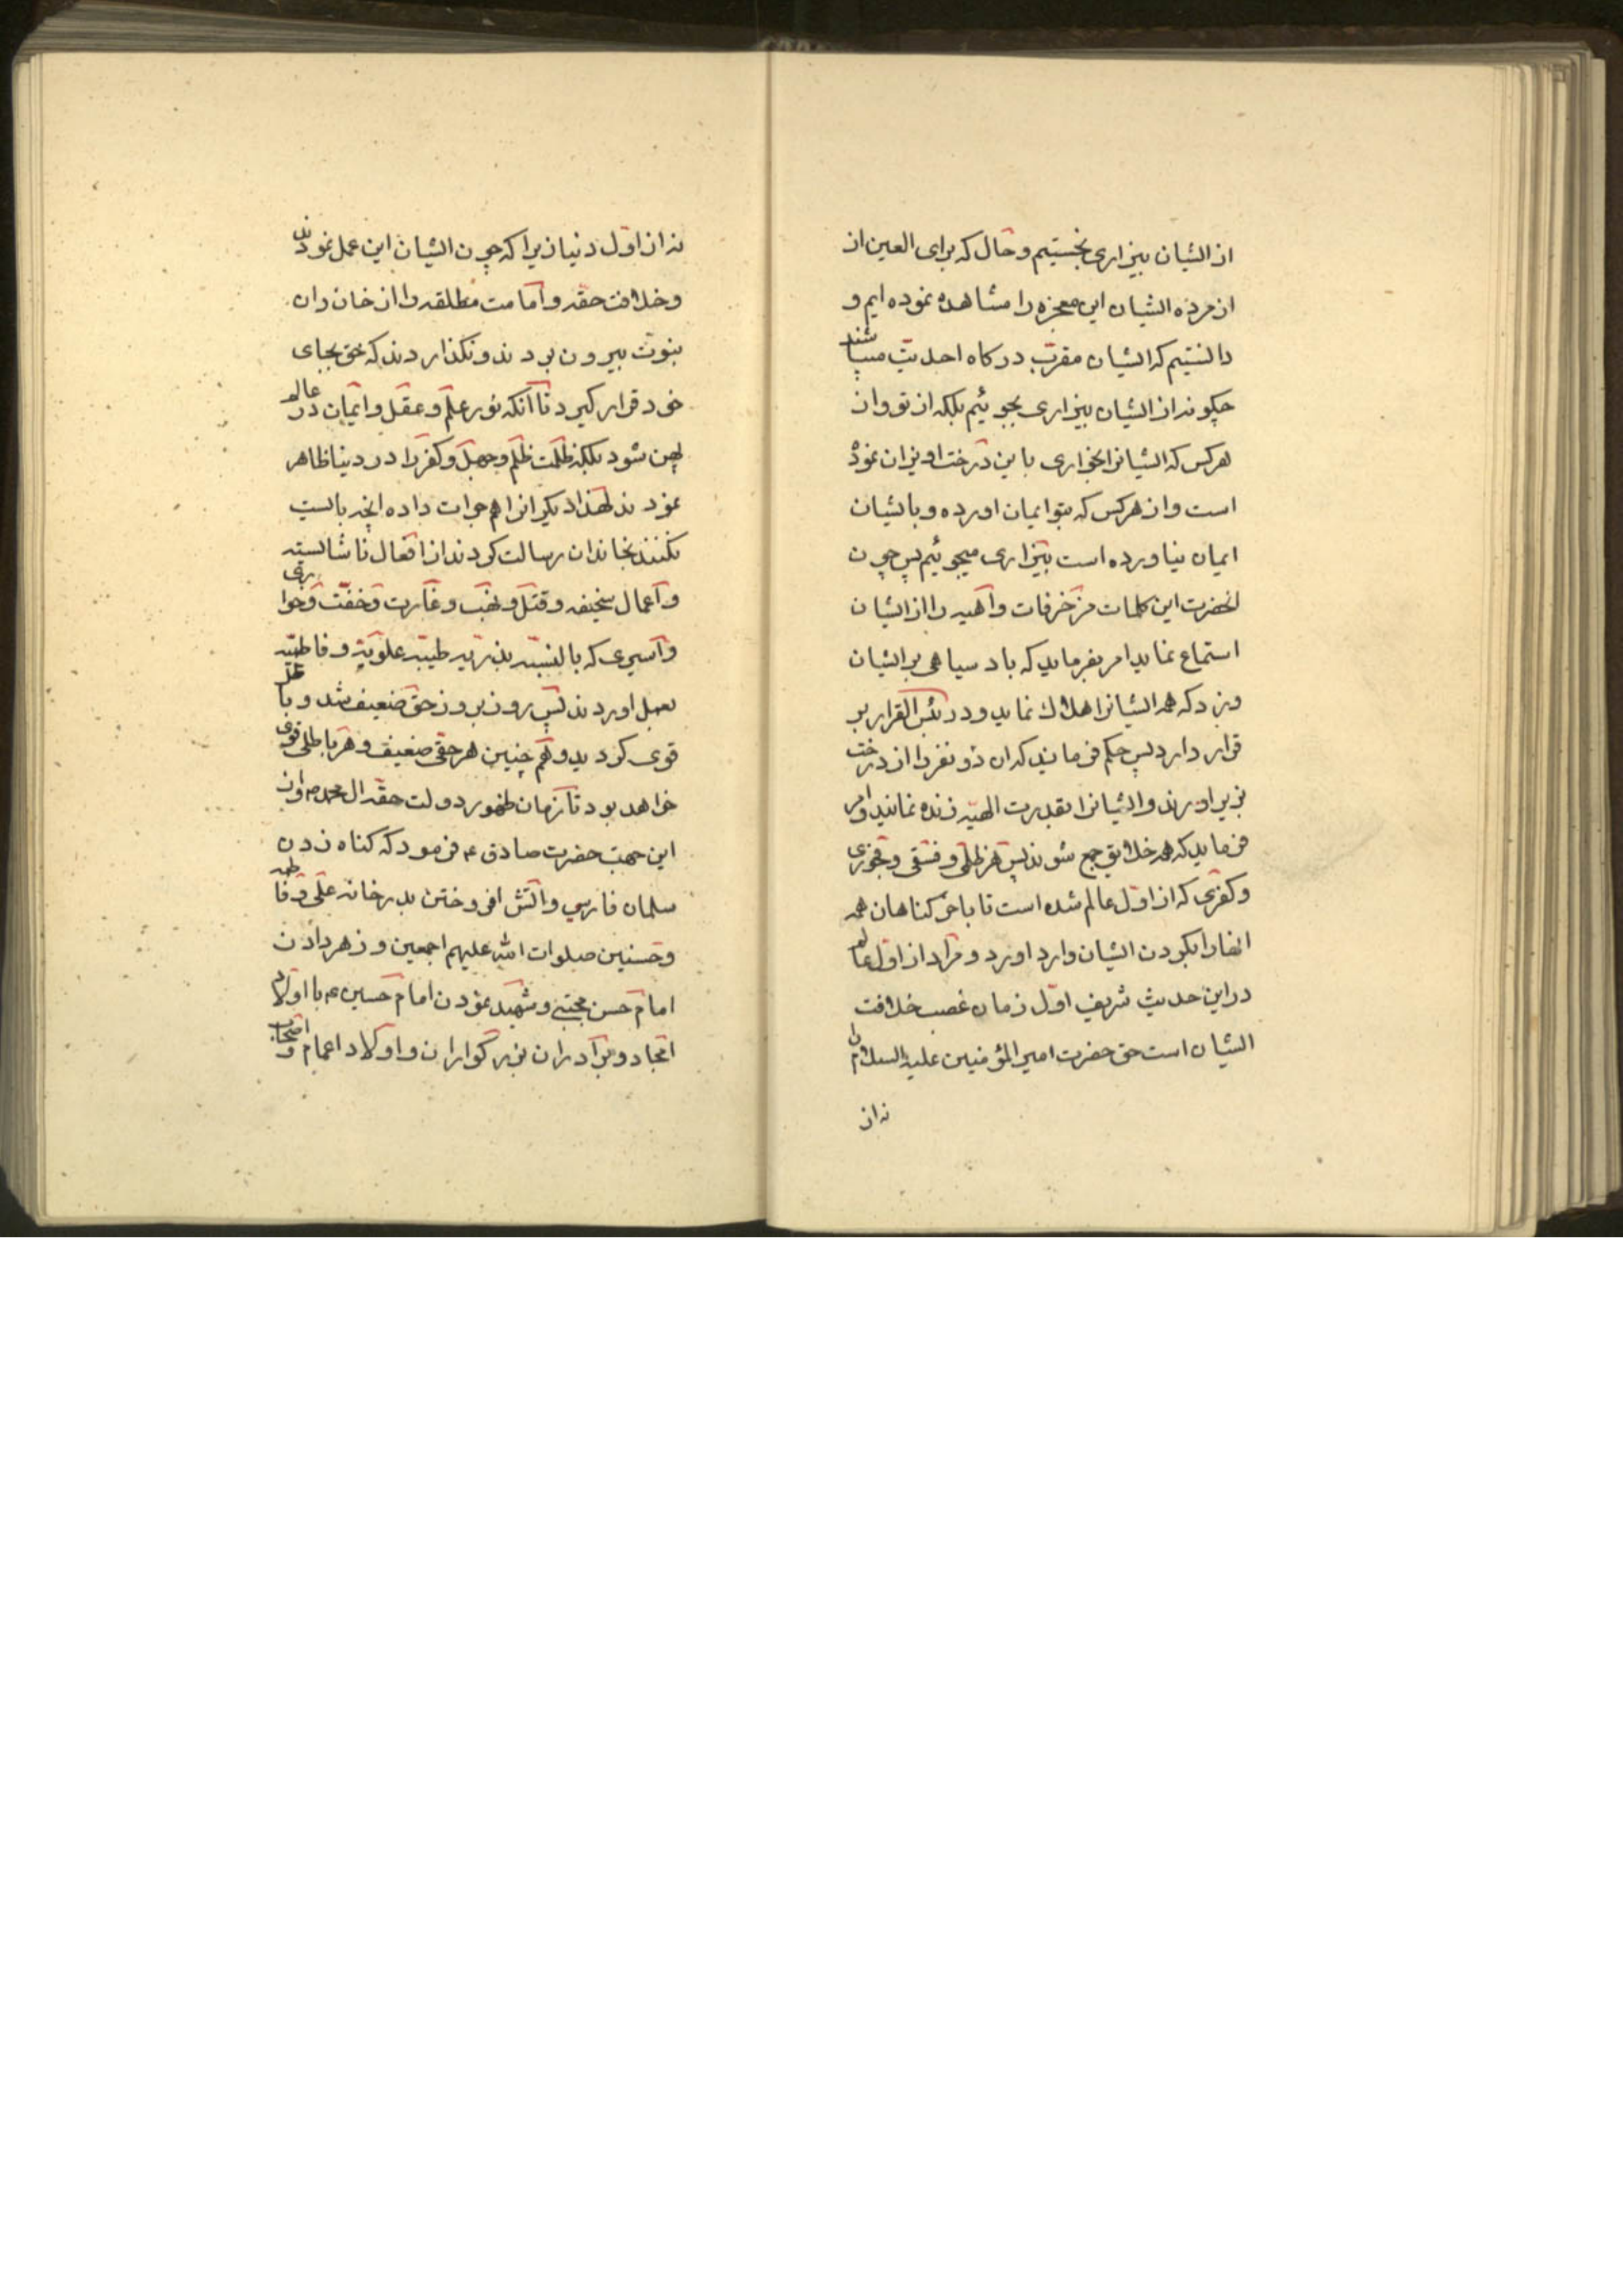 از ایشان بیزاری نجستیم و حال که برای العین از
از مرده ایشان این معجزه را مشاهده نموده ایم و
دانستیم که ایشان مقرب درکاه احدیت میباشند
چکونه از ایشان بیزاری بجوئیم بلکه از تو و از
هرکس که ایشانرا بخواری باین درخت اویزان نموده
است و از هرکس که بتو ایمان اورده و بایشان
ایمان نیاورده است بیزاری میجوئیم پس چون
انحضرت این کلمات مزخرفات واهیه را از ایشان
استماع نماید امر بفرماید که باد سیاهی بر ایشان
وزد که همه ایشانرا هلاک نماید و در بئس القرار بر
قرار دارد پس حکم فرماید که ان دو نفر را از درخت
بزیر اورند و ایشانرا بقدرت الهیه زنده نمایند و امر
فرماید که همه خلایق جمع شوند پس هر ظلمی و فسقی و فجوری
و کفری که از اول عالم شده است تا باخر کناهان همه
انها را بکردن ایشان وارد اورد و مراد از اول عالم
در این حدیث شریف اول زمان غصب خلافت
ایشان است حق حضرت امیر المؤمنین علیه السلام را
نه از
نه از اول دنیا زیرا که چون ایشان این عمل نمودند
و خلافت حقه و امامت مطلقه را از خان دان
بنوت بیرون بردند و نکذاردند که حق بجای
خود قرار کیرد تا آنکه نور علم و عقل و ایمان در عالم
پهن شود بلکه ظلمت ظلم و جهل و کفر را در دنیا ظاهر
نمودند لهذا دیکرانرا هم جرات داده انچه بایست
نکنند بخاندان رسالت کردند از افعال ناشایسته
و اعمال سخیفه و قتل و نهب و غارت و خفت و خواری
و اسیری که بالنسبه بذریه طیبه علویه و فاطمیه
بعمل اوردند پس روز بروز حق ضعیف شد و باطل
قوی کردید و هم چنین هر حقی ضعیف و هر باطلی قوی
خواهد بود تا زمان ظهور دولت حقه ال محمد ص و از
این جهت حضرت صادق ع فرمود که کناه زدن
سلمان فارسی و اتش افروختن بدر خانه علی و فاطمه
و حسنین صلوات الله علیهم اجمعین و زهر دادن
امام حسن مجتبی و شهید نمودن امام حسین ع با اولاد
امجاد و برادران بزرکواران و اولاد اعمام و اصحاب